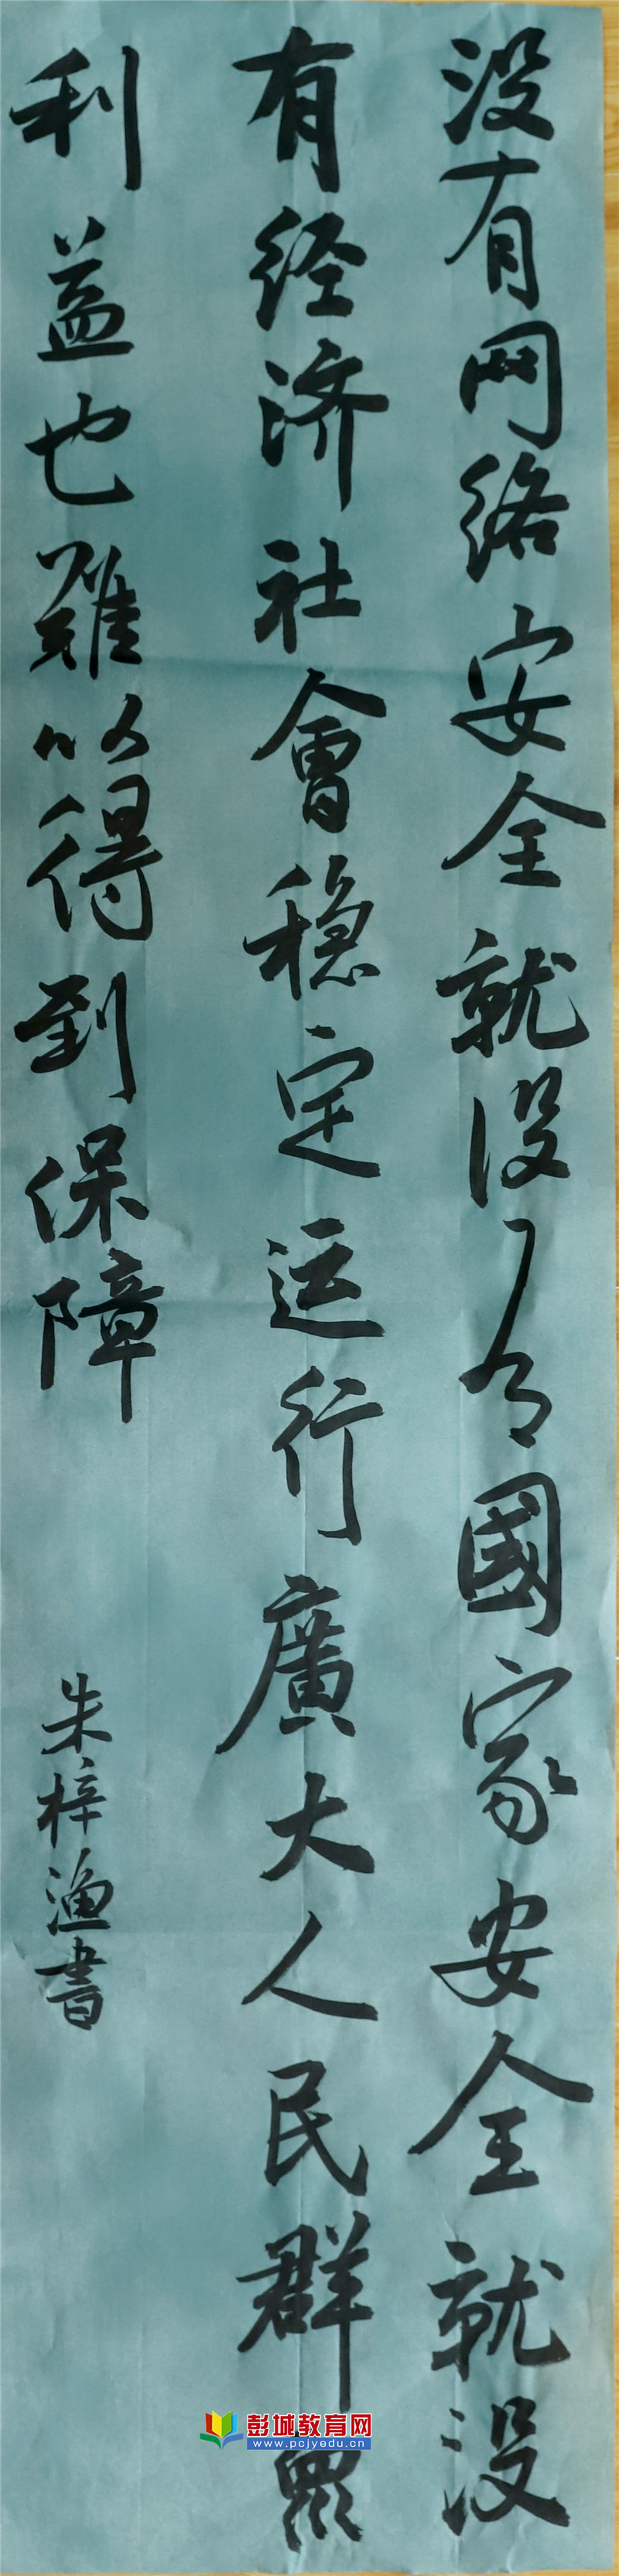 没有网络安全就没有國家安全就没
有经济社會稳定运行廣大人民群眾
利益也難以得到保障
朱梓渔書
彭城教育网
www.pcjyedu.cn